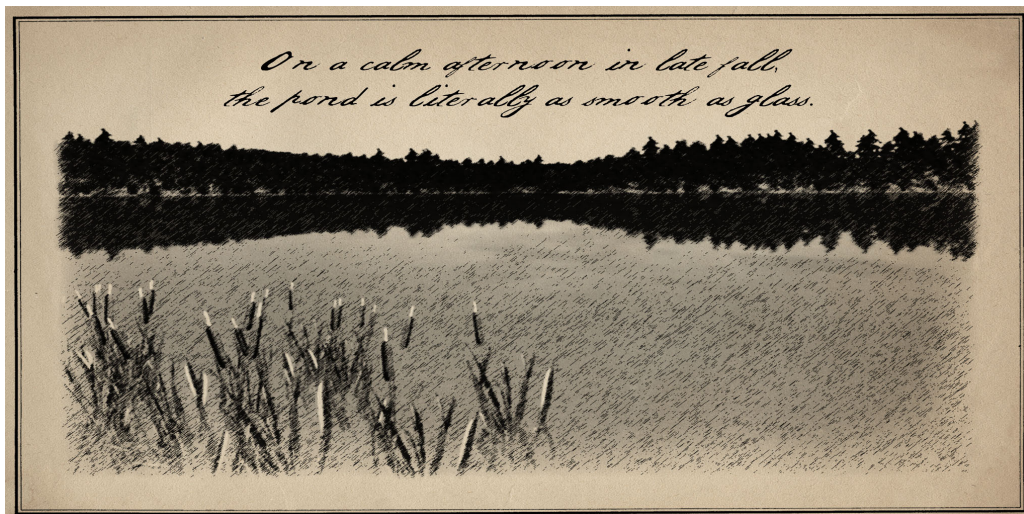 On a calm afternoon in late fall,
the pond is literally as smooth as glass.